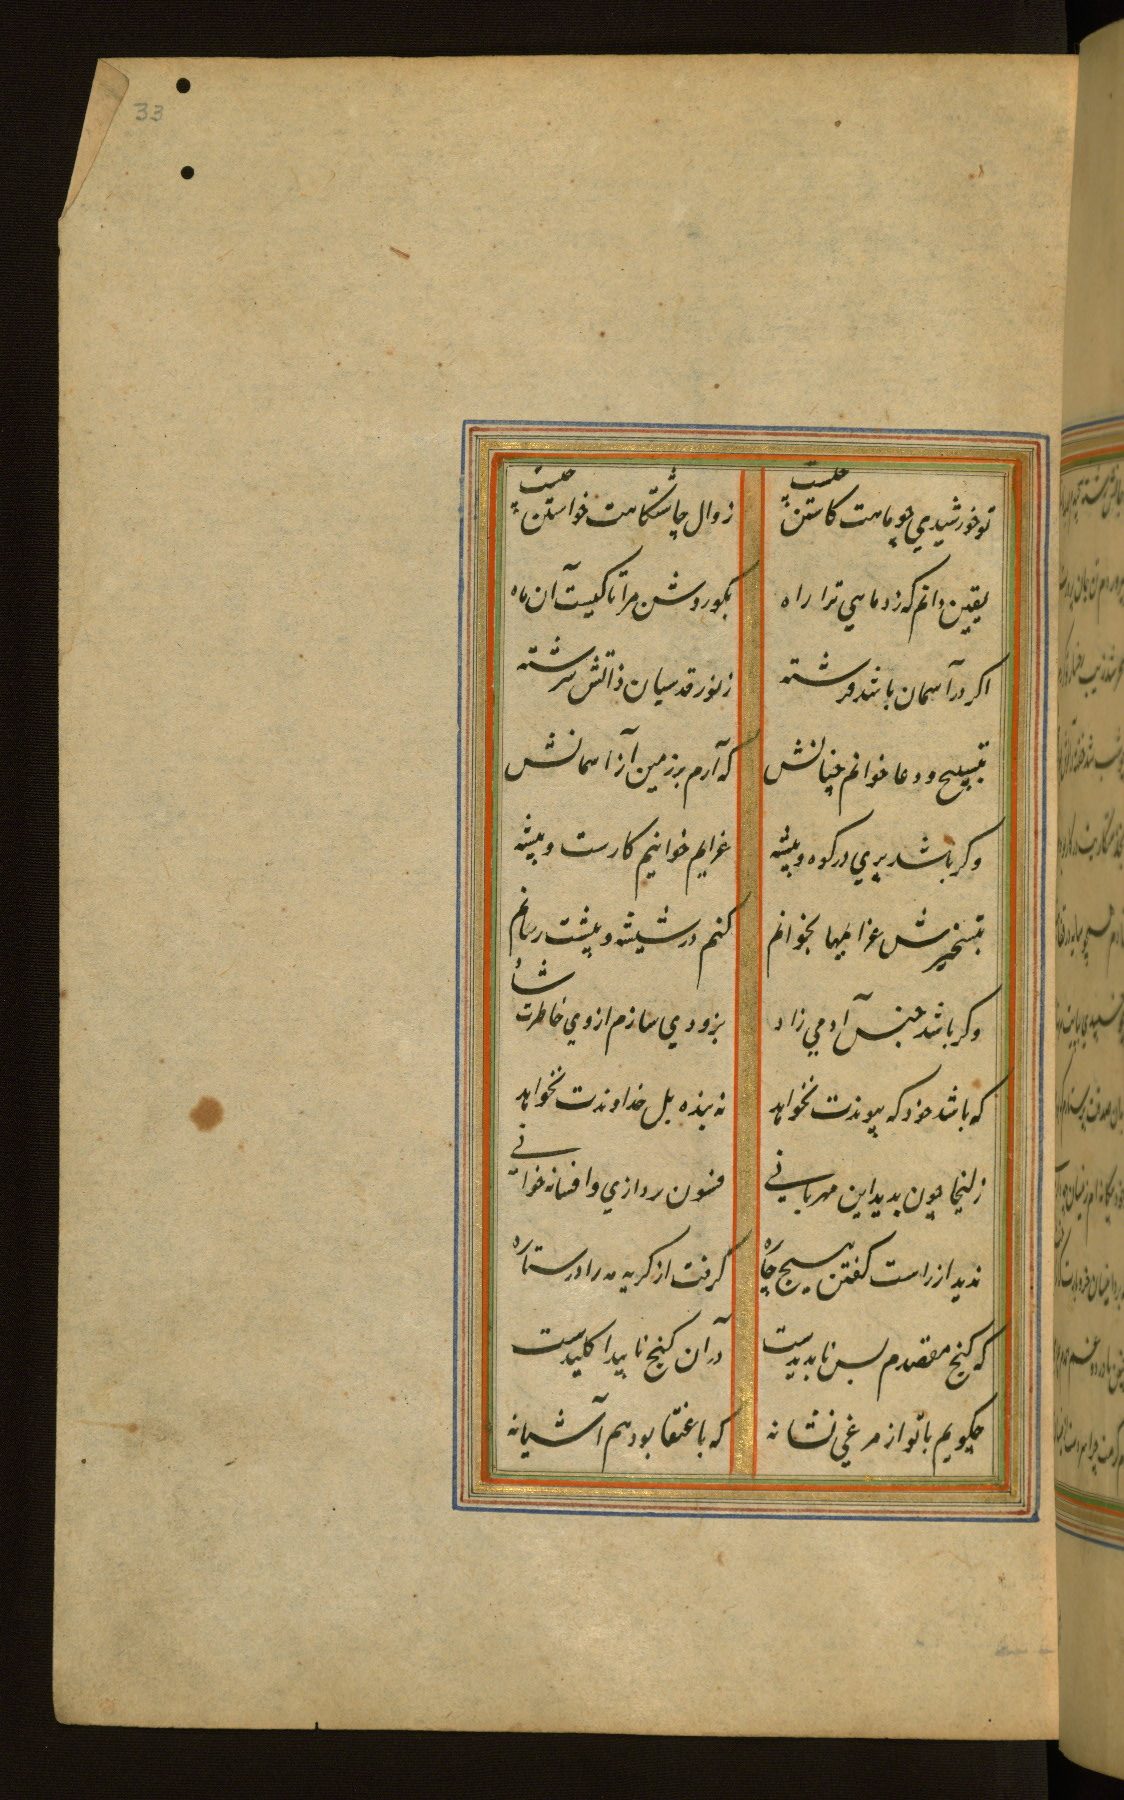 33
تو خورشیدی چو ماهت کاستن چیست
زوال چاشتگاهت خواستن چیست
یقین دانم که زد ماهی ترا راه
بگو روشن مرا تا کیست آن ماه
اکر در آسمان باشد فرشته
ز نور قدسیان ذاتش سرشته
بتسبیح و دعا خوانم چنانش
که آرم بر زمین از آسمانش
وکر باشد پری در کوه و بیشه
عزایم خوانیم کارست و پیشه
بتسخیرش عزایمها بخوانم
کنم در شیشه و پیشت رسانم
وکر باشد ز جنس آدمی زاد
بزودی سازم از وی خاطرت شاد
که باشد خود که پیوندت نخواهد
نه بنده بل خداوندت نخواهد
زلیخا چون بدید این مهربانی
فسون پردازی و افسانه خوانی
ندید از راست کفتن هیچ چاره
کرفت از کریه مه را در ستاره
که کنج مقصدم بس ناپدیدست
در آن کنج ناپیدا کلیدست
چکویم با تو از مرغی نشانه
که با عنقا بود هم آشیانه